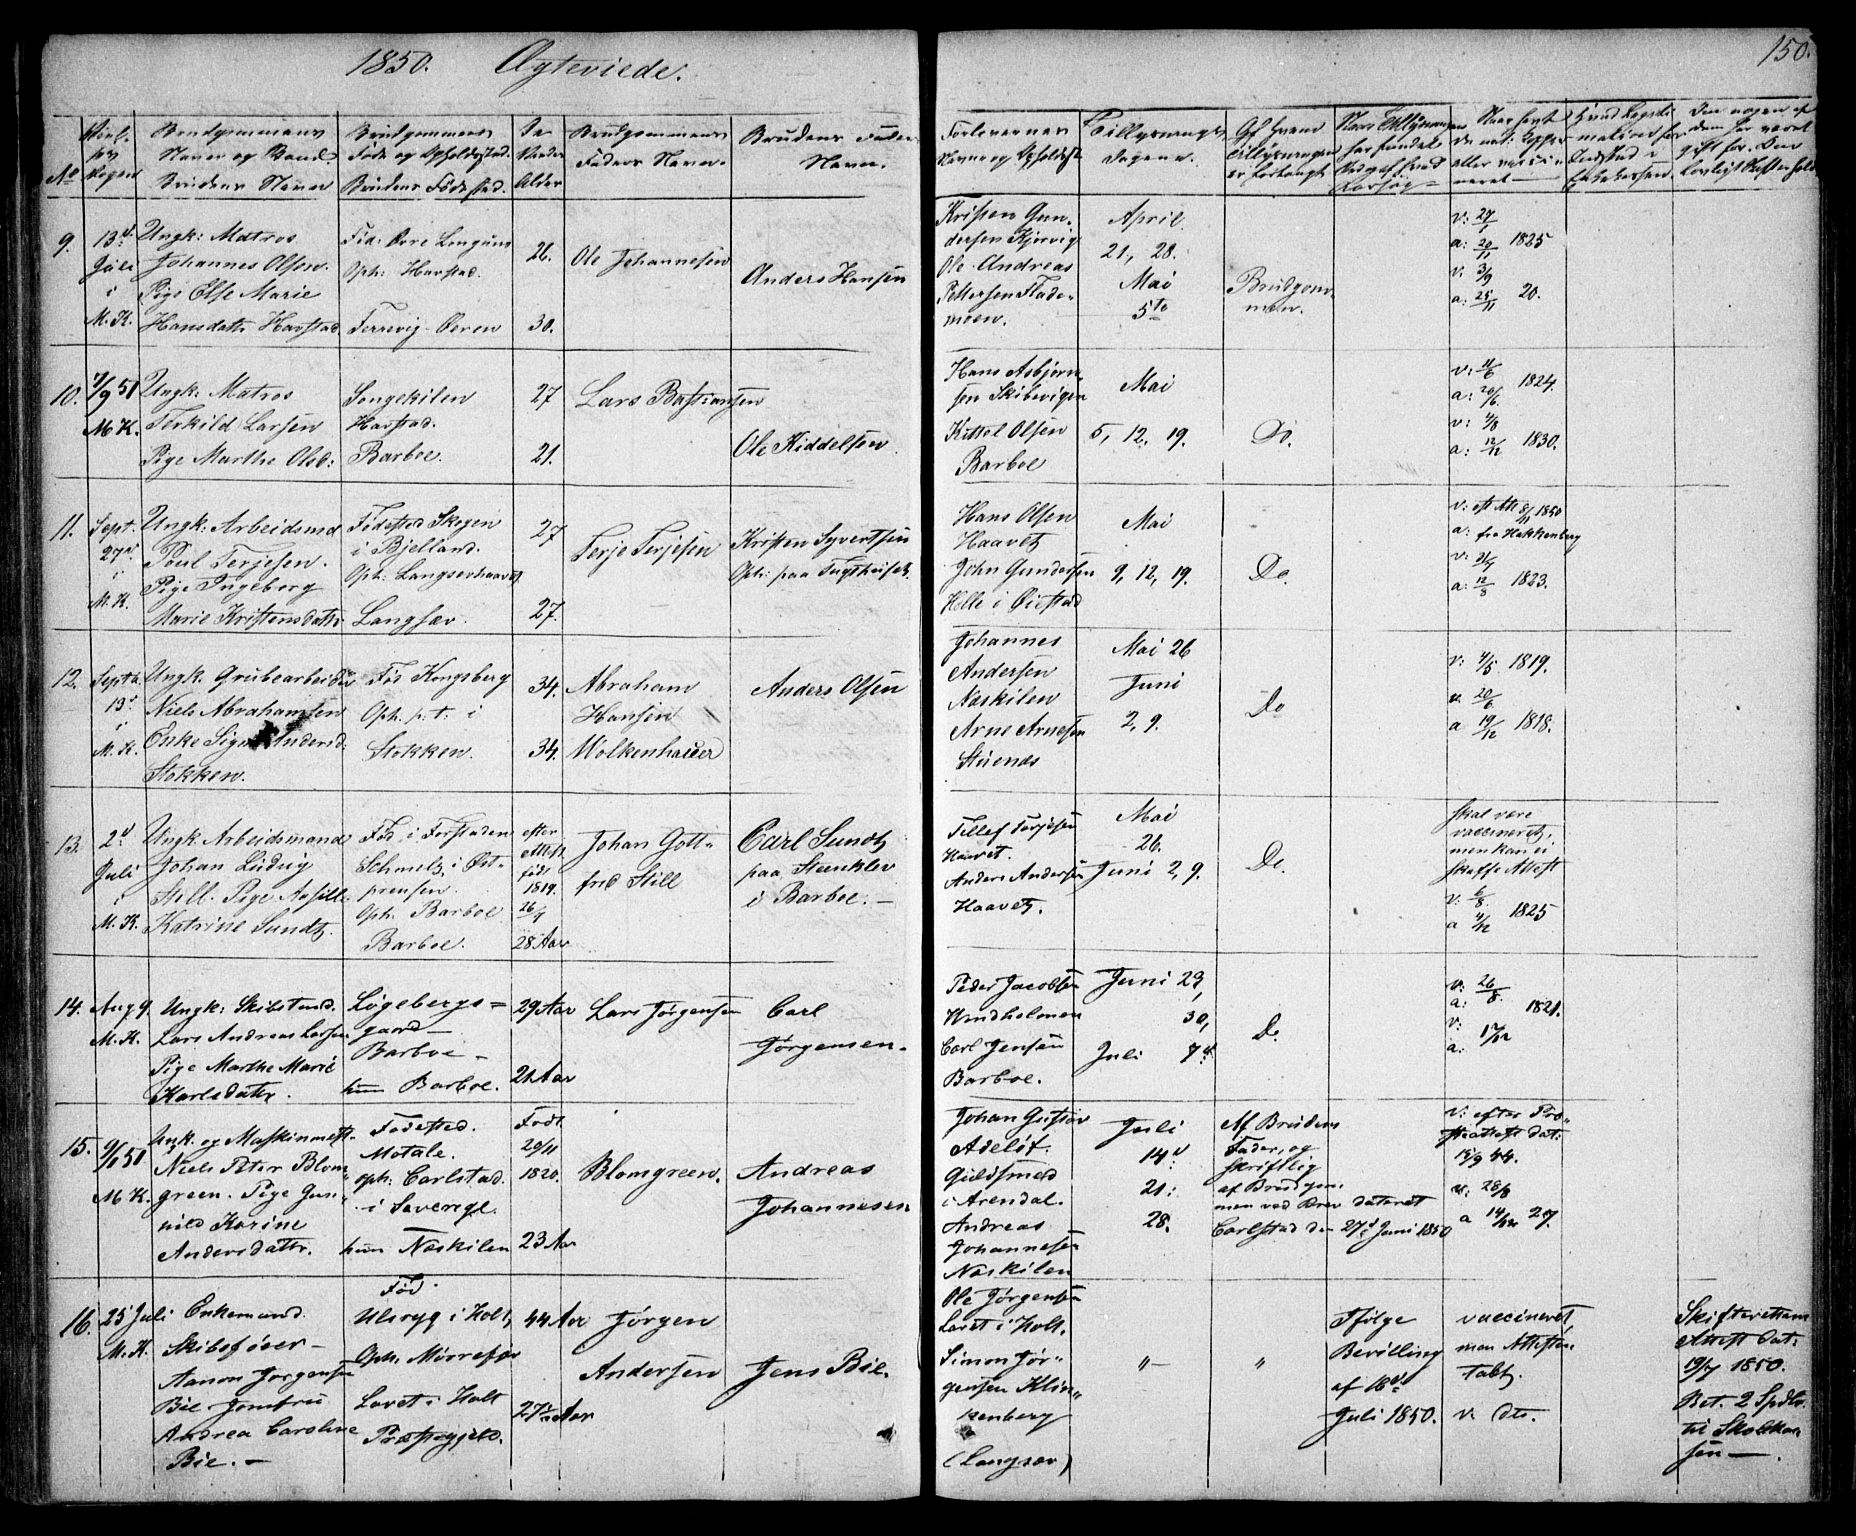 1850. Ægteviede.
150.
No
Brudgommens
Navn og Stand.
Brudens Navn
Brudgommens
Føde og Opholdssted.
Brudens Fødested.
Alder
Brudgommens
Faders Navn.
Brudens Faders
Navn.
Forlovernes
Navne og Opholdsst
Tillysnings
Dagene.
Af hvem
Tillysningen
er forlangt
9.
13d
Juli
i
M. K.
Ungk: Matros
Johannes Olsen.
Pige Else Marie
Hansdattr Havstad.
Fød: Øvre Longum
Oph: Havstad.
Ferrevig-Oeren
26.
30.
Ole Johannesen
Anders Hansen
Kristen Gun-
dersen Kjørvig
Ole Andreas
Pettersen Flade-
moen.
April.
21, 28.
Mai
5te
Brudgom-
men.
v: 27/1
a: 20/11 1825
v. 3/9
a: 25/11 20.
10.
7/9 51
M. K.
Ungk: Matros
Terkild Larsen
Pige Marthe Olsd:
Songekilen
Havstad.
Barboe.
27
21.
Lars Bastiansen
Ole Kiddelsen
Hans Asbjørn-
sen Skibvigen
Kittel Olsen
Barboe
Mai
5, 12, 19.
Do.
v: 11/6
a: 20/6 1824.
v: 4/8
a: 12/12 1830.
11.
Sept.
27de
i
M. K.
Ungk: Arbeidsmd
Poul Terjesen.
Pige Ingeborg
Marie Kristensdattr
Fødested Skogen
i Bjelland.
Oph: Langsevhaavet
Langsæv.
27
27.
Terje Terjesen
Kristen Syvertsen
Oph: paa Tugthuset
Hans Olsen
Haavet
John Gundersen
Helle i Øiestad
Mai
9, 12, 19.
Do.
v: eft Att 8/11 1850
a: fra Hakkenberg
v: 21/7
a: 12/3 1823.
12.
Septb.
13d
i
M. K.
Ungk. Grubearbeider
Niels Abrahamsen
Enke Signe Andersd.
Stokken.
Fød Kongsberg
Oph. p. t. i
Stokken.
34.
34.
Abraham
Hansen
Wolkenhauer
Anders Olsen
Johannes
Andersen
Naskilen
Arne Arnesen
Stuenæs
Mai 26
Juni
2, 9.
Do
v: 4/5 1819.
v. 20/6
a 19/12 1818.
13.
2d
Juli
i
M. K.
Ungk Arbeidsmand
Johan Ludvig
Still. Pige Aasille
Katrine Sundt.
Fød i Forstaden
Schmelz i Øst-
preusen.
Oph: Barboe
Barboe.
efter
Attest
født
1819.
26/4
28 Aar
Johan Gott-
fred Still
Carl Sundt
paa Steenklev
i Barboe.-
Tellef Terjesen
Haavet.
Anders Andersen
Haavet.
Mai
26.
Juni 2, 9.
Do.
skal være
vaccineret,
men kan ei
skaffe Attest
v. 6/8.
a 4/12 1825
14.
Aug 9.
M. K.
Ungk: Skibstmd.
Lars Andreas Larsen
Pige Marthe Marie
Karlsdattr.
Løgebergs=
gaard-
Barboe-
hun Barboe.
29 Aar
21 Aar
Lars Jørgensen
Carl
Jørgensen.
Peder Jacobsen
Windholmen
Carl Jensen
Barboe.
Juni 23,
30,
Juli 7d.
Do.
v: 26/8.
a: 1821.
v:
a: 17/12
15.
9/1 51
M. K.
Unk. og Maskinmest
Niels Peter Blom-
green. Pige Gun-
nild Karine
Andersdattr.
Fødested.
Motale.
oph: Carlstad.
i Sverrige.
hun Naskilen
Født
20/11
1820.
23 Aar
Blomgreen.
Andreas
Johannesen
Johan Gustav
Adeløf.
Guldsmed
i Arendal.
Andreas
Johannesen
Naskilen
Juli
14d
21.
28.
Af Brudens
Fader, og
skriftlig
af Brudgom
men ved Brev dateret
Carlstad den 27d Juni 1850
v: efter Pro-
steattest dat:
15/9 44.
v: 28/8
a 14/12 27.
16.
25 Juli
M. K.
Enkemand.
Skibsfører-
Aanon Jørgensen
Bie Jomfru
Andrea Caroline
Bie.-
Fød.
Ulsryg i Holt,
Oph. Mørrefær
Lovet i Holt
Præstegjeld.
44 Aar
27½ Aar
Jørgen
Andersen
Jens Bie.
Ole Jørgensen
Lovet i Holt.
Simon Jør-
gensen Klin-
kenberg
(Langsæv)
"-
"
Ifølge
Bevilling
af 16de
Juli 1850.
vaccineret,
men Attesten
tabt.
v. dto.
Skifterettens
Attest dat:
19/7 1850.
Bet. 2 Spdlr.
til Skolekas
sen-.